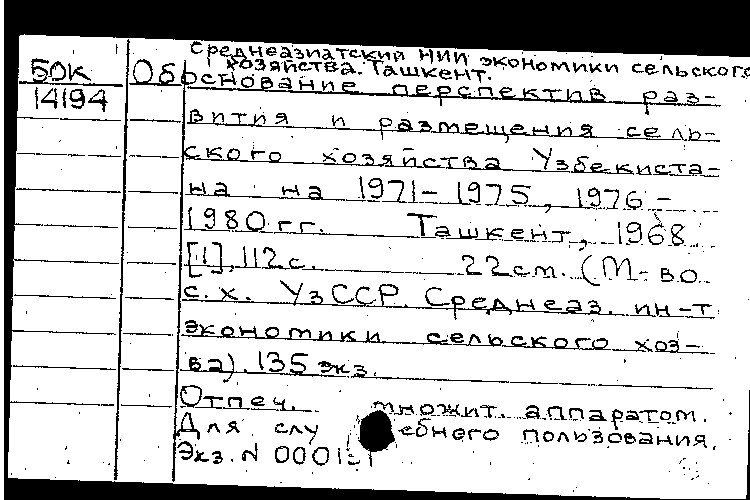 Среднеазиатский НИИ экономики сельского
хозяйства. Ташкент.
БОК
14194
Обоснование перспектив раз-
вития и размещения сель-
ского хозяйства Узбекиста-
на на 1971-1975, 1976-
1980 гг. Ташкент, 1968.
[1], 112 с. 22 см. (М-во
с.х. УзССР. Среднеаз. ин-т
экономики сельского хоз-
ва). 135 экз.
Отпеч. множит. аппаратом.
Для слу ебного пользования.
Экз. N